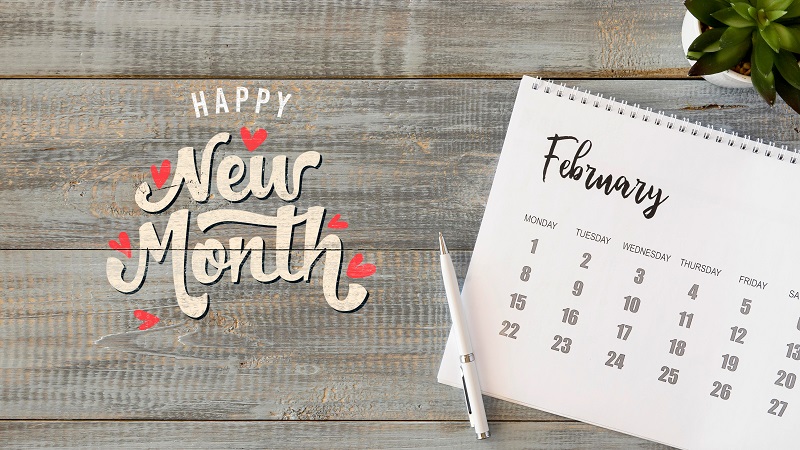 HAPPY
New
Month
February
MONDAY TUESDAY WEDNESDAY THURSDAY FRIDAY
1 2 3 4 5
8 9 10 11 12
15 16 17 18 19 20
22 23 24 25 26 27